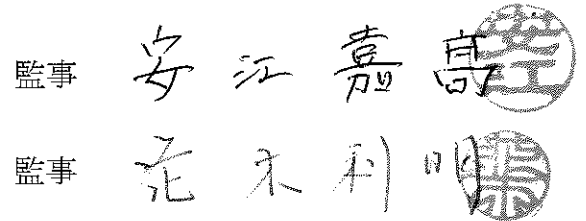 監事 安江嘉高
監事 荒木利明